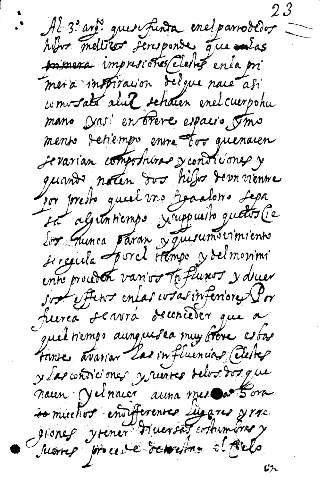 23
Al 3º argº que se funda en el parto de dos
hijos mellizos se responde que en las
primera impresiones Celestes en la pri
mera inspiracion del que nace asi
como sale a luz se hacen en el cuerpo hu
mano y asi en breve espacio y mo
mento de tiempo entre dos que nacen
se varian composturas y condiciones y
quando nacen dos hijos de un vientre
por presto que el uno siga al otro se pa
sa algun tiempo y supuesto que los Cie
los nunca paran y que su movimiento
se regula por el tiempo y del movimi
ento proceden varios influxos y diver
sos effetos en las cosas inferiores Por
fuerça se avra de conceder que a
quel tiempo aunque sea muy breve es bas
tante a variar las influencias Celestes
y las condiciones y suertes de los dos que
nacen y el nacer a una mesma hora
muchos en differentes lugares y re
giones y tener diversas costumbres y
suertes procede de el Cielo